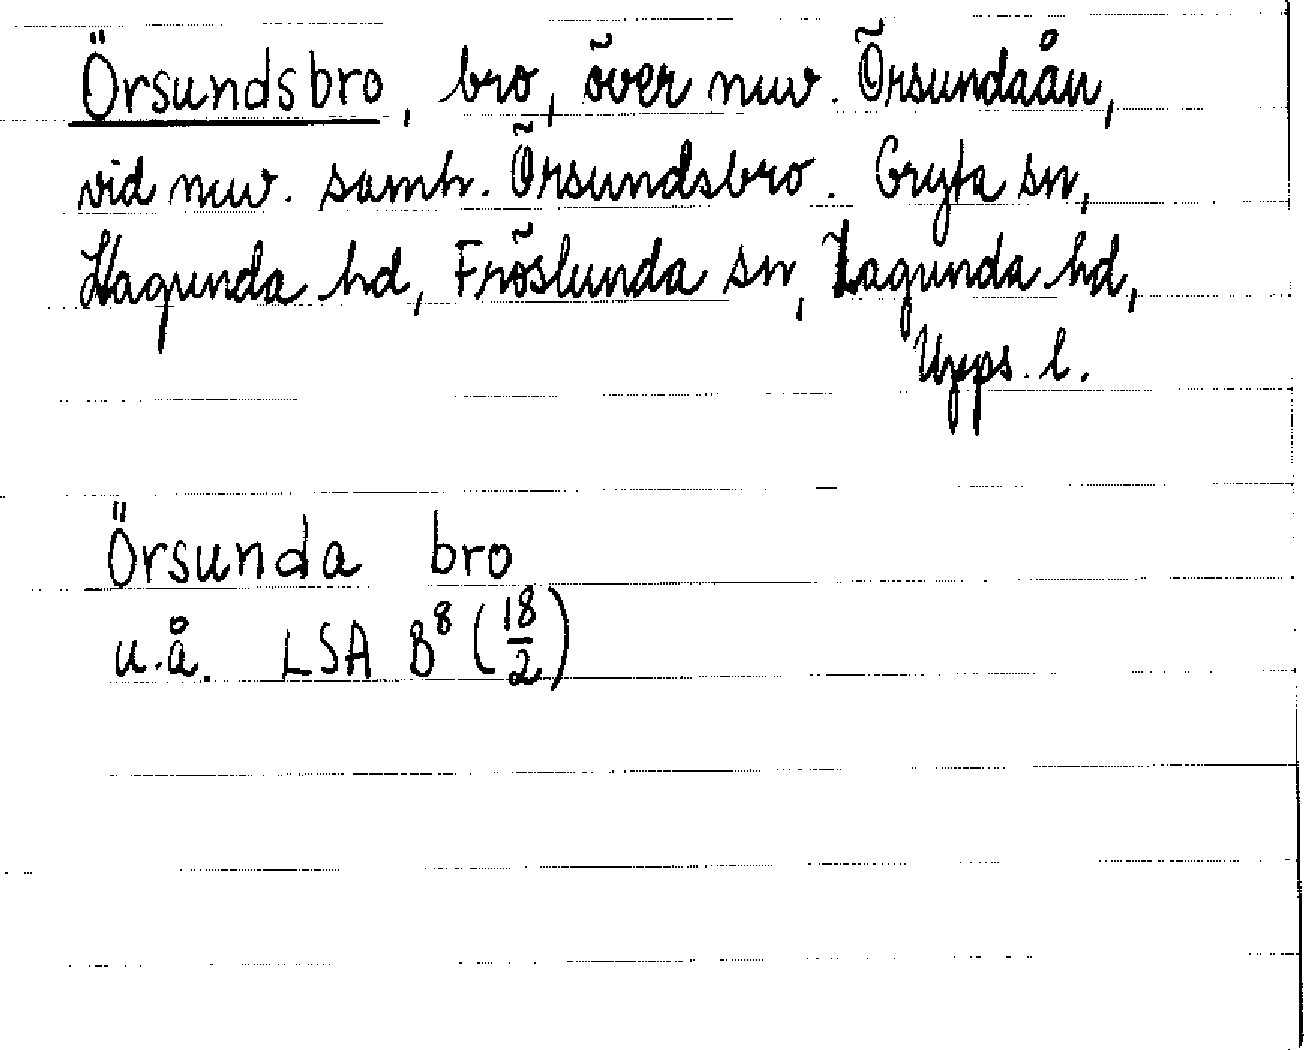 Örsundsbro, bro, över nuv. Örsundaån,
vid nuv. samh. Örsundsbro. Gryta sn,
Hagunda hd, Fröslunda sn, Lagunda hd,
Upps. l.
Örsunda bro
u.å. LSA B⁸ (18/2)